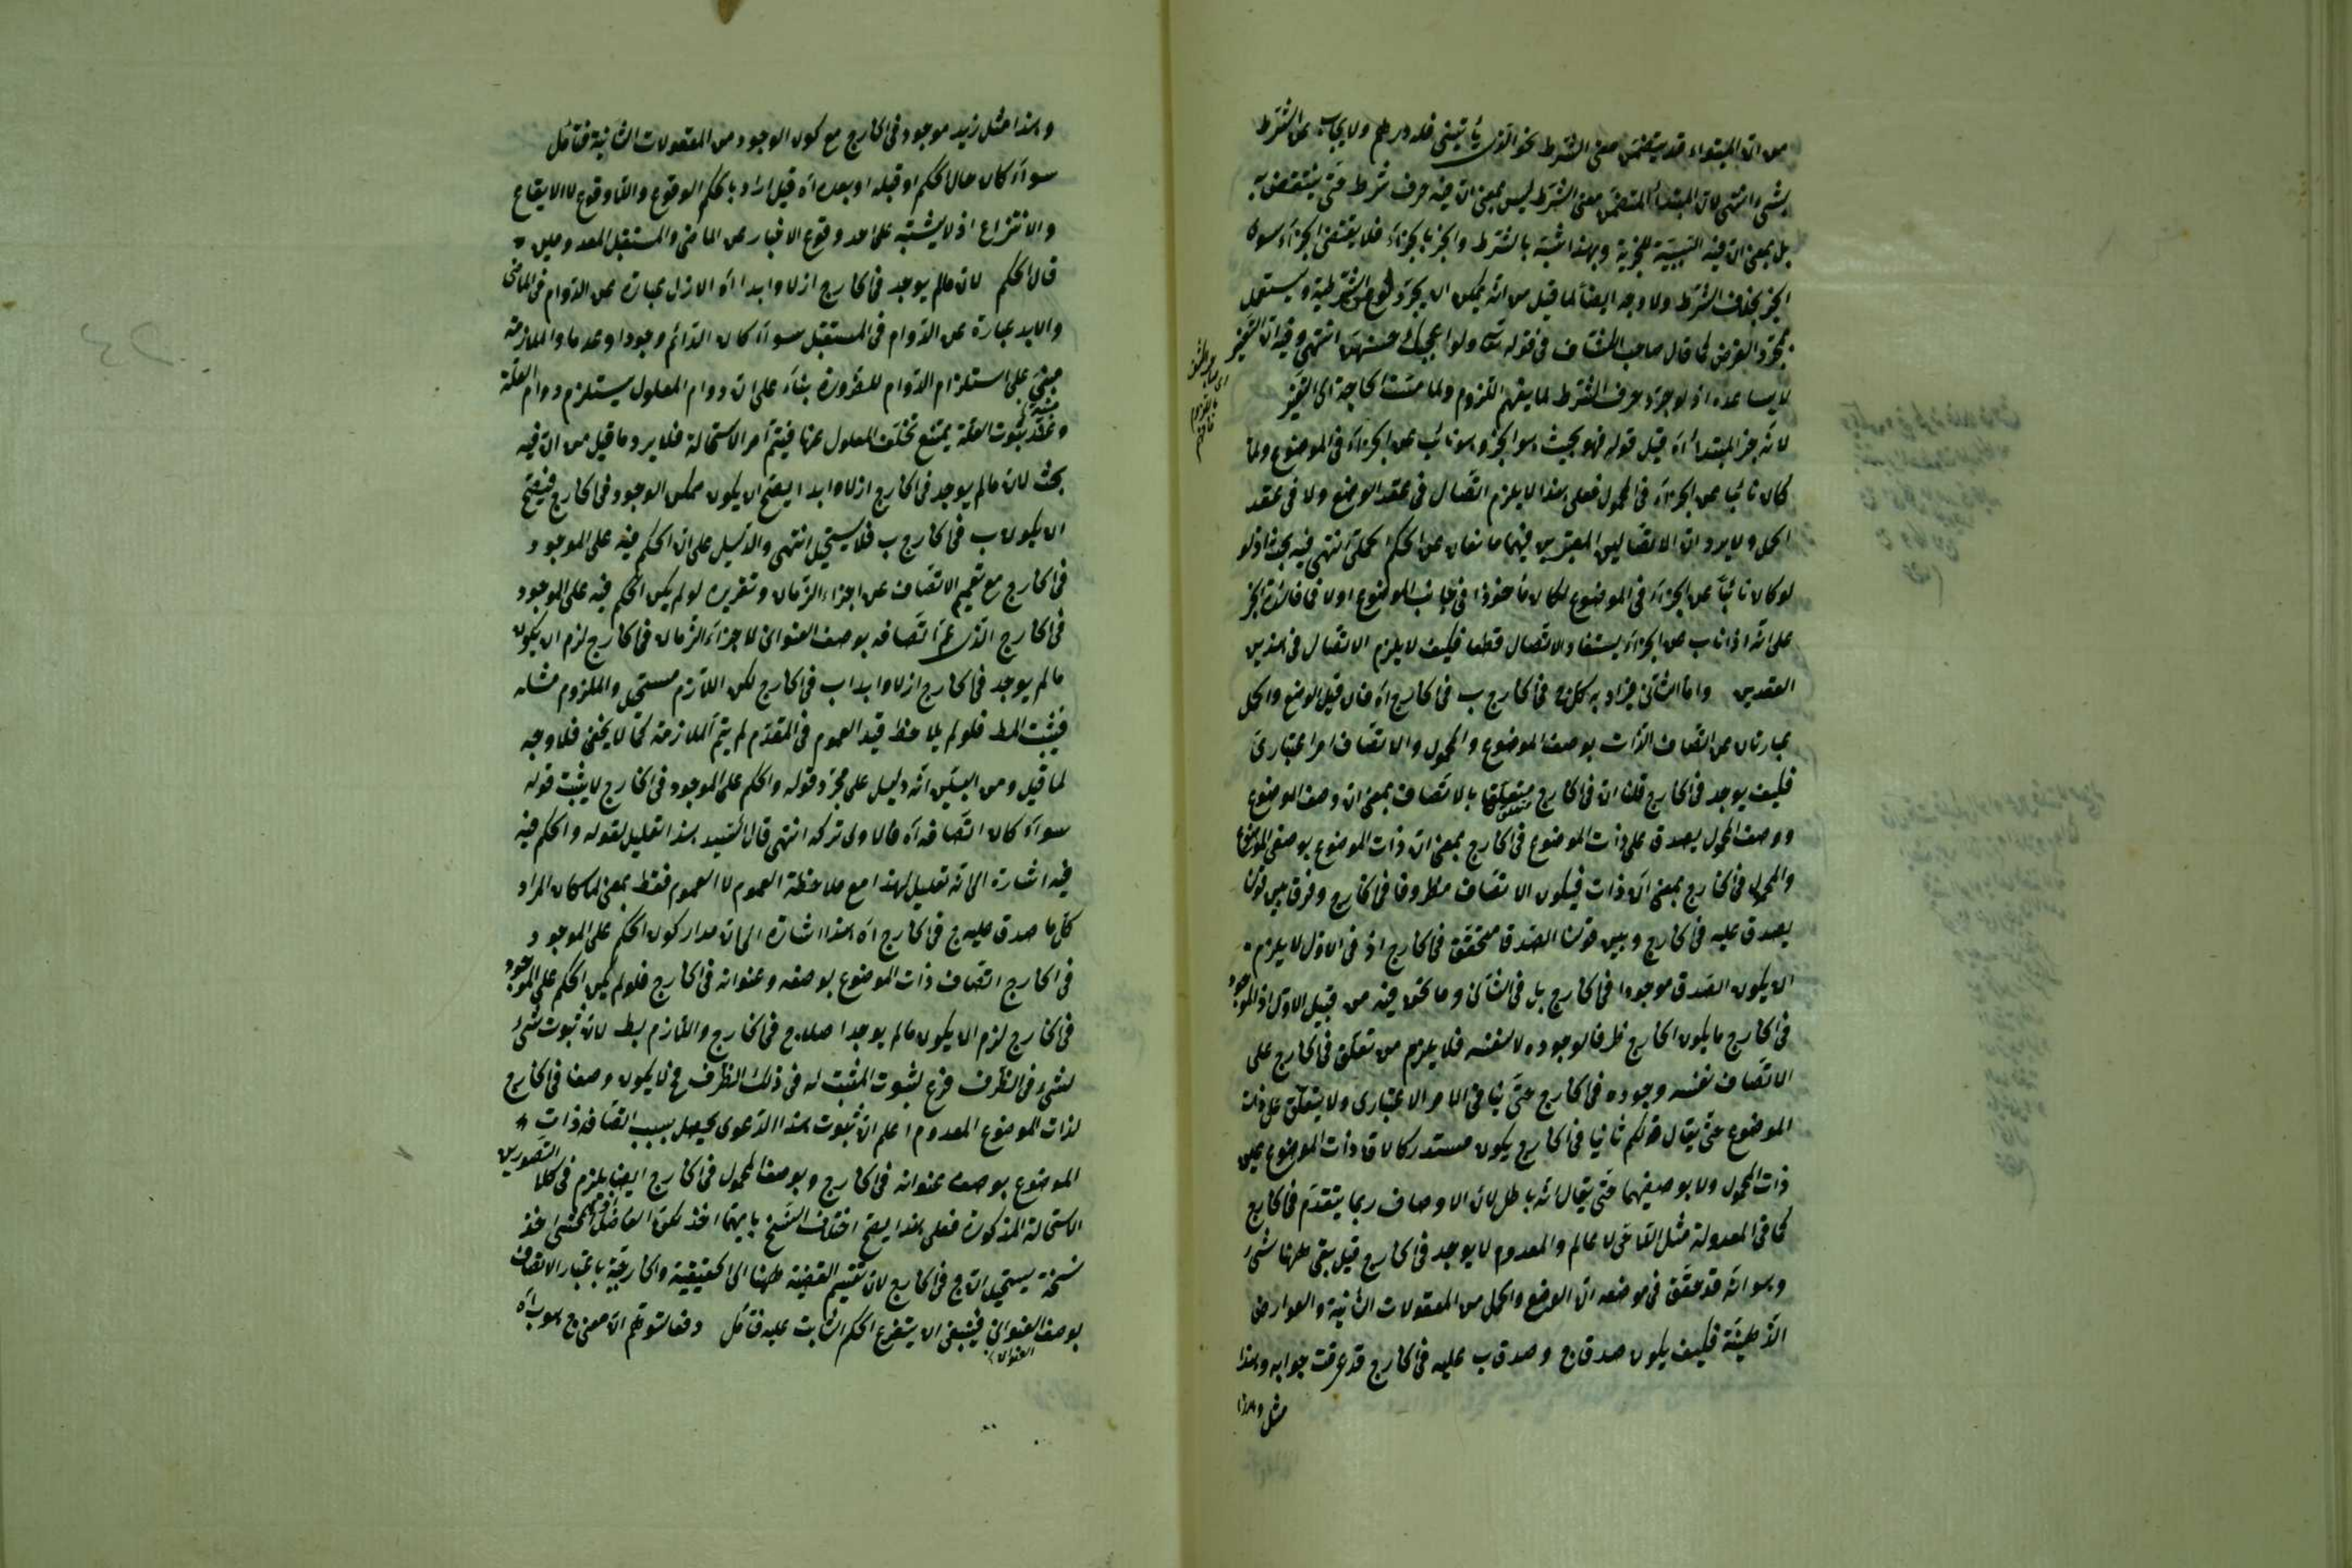 من ان المبتداء قد يتضمن معنى الشرط نحو الذى يأتينى فله درهم ولا يجاب عن الشرط
بشىء انتهى لان المبتدأ المتضمن معنى الشرط ليس بمعنى ان فيه حرف شرط حتى ينتقض به
بل بمعنى ان فيه السببية للخبرية وبهذا شبه بالشرط والخبر بالجزاء فلا يقتضى الجزاء سوى
الخبر بخلاف الشرط ولا وجه ايضا لما قيل من انه يمكن ان يجرد لو عن الشرطية ويستعمل
لمجرد الفرض كما قال صاحب الكشاف فى قوله تعالى ولو اعجبك حسنهن انتهى وفيه ان
لا يساعده اذ لو جرد حرف الشرط لما يفهم اللزوم ولما مست الحاجة الى
لانه خبر المبتدأ اه قيل قوله فهو بحيث هو الخبر وهو نائب عن الجزاء فى الموضوع ولما
كان نائبا عن الجزاء فى المحمول فعلى هذا لا يلزم اتصال فى عقد الوضع ولا فى عقد
الحمل ولا يرد ان الاتصالين المعتبرين فيهما مانعان عن الحكم الحملى انتهى فيه بحث اذ لو
لو كان نائبا عن الجزاء فى الموضوع لكان مأخوذا فى جانب الموضوع اولا فما فائدة الخبر
على انه اذا ناب عن الجزاء يستفاد الاتصال قطعا فكيف لا يلزم الاتصال فى هذين
العقدين واما الثانى فيراد به كل ج فى الخارج ب فى الخارج اه فان قيل الوضع والحمل
عبارتان عن اتصاف الذات بوصف الموضوع والمحمول والاتصاف امر اعتبارى
فكيف يوجد فى الخارج قلنا ان فى الخارج متعلق بالاتصاف بمعنى ان وصف الموضوع
ووصف المحمول يصدق على ذات الموضوع فى الخارج بمعنى ان ذات الموضوع بوصفى الموضوع
والمحمول فى الخارج بمعنى ان ذات فيكون الاتصاف مظروفا فى الخارج وفرق بين قولنا
يصدق عليه فى الخارج وبين قولنا الصدق متحقق فى الخارج اذ فى الاول لا يلزم
ان يكون الصدق موجودا فى الخارج بل فى الثانى وما نحن فيه من قبيل الاول اذ الموجود
فى الخارج ما يكون الخارج ظرفا لوجوده لا لنفسه فلا يلزم من تعلق فى الخارج على
الاتصاف نفسه وجوده فى الخارج حتى ينافى الامر الاعتبارى ولا يتعلق على ذات
الموضوع حتى يقال قولكم ثانيا فى الخارج يكون مستدركا لاتحاد ذات الموضوع عين
ذات المحمول ولا بوصفيهما حتى يقال انه باطل لان الاوصاف ربما يتقدم فى الخارج
كما فى المعدولة مثل القاضى لا عالم والمعدوم لا يوجد فى الخارج قيل بقى ههنا شىء
وهو انه قد حقق فى موضعه ان الوضع والحمل من المعقولات الثانية والعوارض
الذهنية فكيف يكون صدق ج وصدق ب عليه فى الخارج قد عرفت جوابه وهذا
مثل وهذا
وهذا مثل زيد موجود فى الخارج مع كون الوجود من المعقولات الثانية فتأمل
سواء كان حال الحكم او قبله او بعده اه قيل اراد بالحكم الوقوع واللاوقوع لا الايقاع
والانتزاع اذ لا يشتبه على احد وقوع الاخبار عن الماضى والمستقبل المعدومين
قال الحكم لان ما لم يوجد فى الخارج ازلا وابدا اه الازل عبارة عن الدوام فى الماضى
والابد عبارة عن الدوام فى المستقبل سواء كان الدائم وجودا او عدما والملازمة
مبنى على استلزام الدوام للضرورة بناء على ان دوام المعلول يستلزم دوام العلة
وعند ثبوت العلة يمتنع تخلف المعلول عنها فيتم امر الاستحالة فلا يرد ما قيل من ان فيه
بحث لان ما لم يوجد فى الخارج ازلا وابدا يصح ان يكون ممكن الوجود فى الخارج فيصح
ان يكون ب فى الخارج ب فلا يستحيل انتهى والدليل على ان الحكم فيه على الموجود
فى الخارج مع تعميم الاتصاف عن اجزاء الزمان وتقريره لو لم يكن الحكم فيه على الموجود
فى الخارج الذى عم اتصافه بوصف العنوان لاجزاء الزمان فى الخارج لزم ان يكون
ما لم يوجد فى الخارج ازلا وابدا ب فى الخارج لكن اللازم مستحيل والملزوم مثله
فيثبت المط فلو لم يلاحظ قيد العموم فى المقدم لم يتم الملازمة كما لا يخفى فلا وجه
لما قيل ومن البين انه دليل على مجرد قوله والحكم على الموجود فى الخارج لا يثبت قوله
سواء كان اتصافه اه فالاولى تركه انتهى قال السيد هذا تعليل لقوله والحكم فيه
فيه اشارة الى انه تعليل لهذا مع ملاحظة العموم لا العموم فقط بمعنى لما كان المراد
كل ما صدق عليه ج فى الخارج اه هذا اشارة الى ان مدار كون الحكم على الموجود
فى الخارج اتصاف ذات الموضوع بوصفه وعنوانه فى الخارج فلو لم يكن الحكم على الموجود
فى الخارج لزم ان يكون ما لم يوجد اصلا ج فى الخارج واللازم بط لان ثبوت شىء
لشىء فى الظرف فرع لثبوت المثبت له فى ذلك الظرف فح لا يكون وصفا فى الخارج
لذات الموضوع المعدوم اعلم ان ثبوت هذا الدعوى يحصل بسبب اتصافه ذات
الموضوع بوصف عنوانه فى الخارج وبوصف المحمول فى الخارج ايضا يلزم فى كلا التصورين
الاستحالة المذكورة فعلى هذا يصح اختلاف النسخ بايهما اخذ لكن الفاضل المحشى اخذ
نسخة يستحيل ان ج فى الخارج لان تقسيم القضية ههنا الى الحقيقية والخارجية باعتبار الاتصاف
بوصف العنوانى فينبغى ان يتفرع الحكم الثابت عليه فتأمل دفعا لتوهم ان معنى ج هو ب اه
العنوان